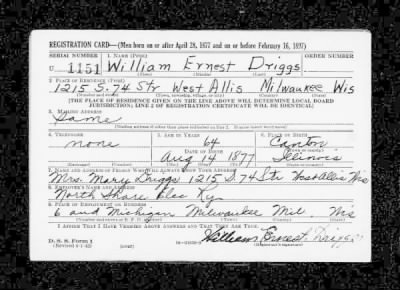 REGISTRATION CARD—(Men born on or after April 28, 1877 and on or before February 16, 1897)
SERIAL NUMBER 1. NAME (Print) ORDER NUMBER
U 1151 William Ernest Driggs
(First) (Middle) (Last)
2. PLACE OF RESIDENCE (Print)
1215 S. 74 Str West Allis Milwaukee Wis
(Number and street) (Town, township, village, or city) (County) (State)
[THE PLACE OF RESIDENCE GIVEN ON THE LINE ABOVE WILL DETERMINE LOCAL BOARD
JURISDICTION; LINE 2 OF REGISTRATION CERTIFICATE WILL BE IDENTICAL]
3. MAILING ADDRESS
Same
[Mailing address if other than place indicated on line 2. If same insert word same]
4. TELEPHONE 5. AGE IN YEARS 6. PLACE OF BIRTH
none 64 Canton
DATE OF BIRTH
Aug 14 1877 Illinois
(Exchange) (Number) (Mo.) (Day) (Yr.) (State or country)
7. NAME AND ADDRESS OF PERSON WHO WILL ALWAYS KNOW YOUR ADDRESS
Mrs. Mary Driggs 1215 S. 74 Str West Allis Wis
8. EMPLOYER'S NAME AND ADDRESS
North Shore Elec Ry.
9. PLACE OF EMPLOYMENT OR BUSINESS
6 and Michigan Milwaukee Mil. Wis
(Number and street or R. F. D. number) (Town) (County) (State)
I AFFIRM THAT I HAVE VERIFIED ABOVE ANSWERS AND THAT THEY ARE TRUE.
D. S. S. Form 1
(Revised 4-1-42) (over) William Ernest Driggs